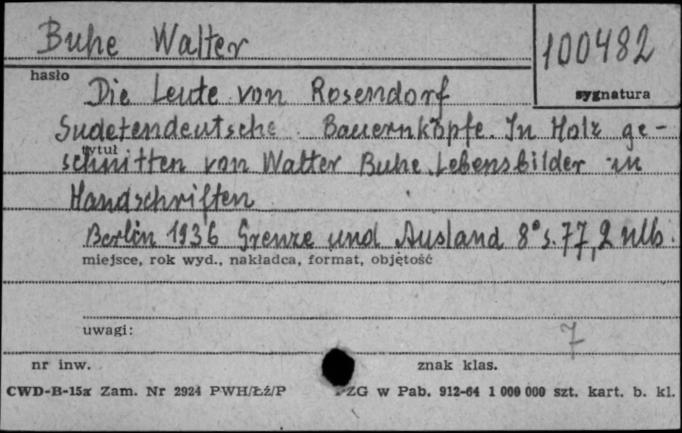 Buhe Walter
100482
hasło
sygnatura
Die Leute von Rosendorf
Sudetendeutsche Bauernköpfe. In Holz ge-
tytuł
schnitten von Walter Buhe. Lebensbilder in
Handschriften
Berlin 1936 Grenze und Ausland 8° s. 77, 2 nlb.
miejsce, rok wyd., nakładca, format, objętość
uwagi:
7
nr inw.
znak klas.
CWD-B-15a Zam. Nr 2924 PWH/Łź/P ZG w Pab. 912-64 1 000 000 szt. kart. b. kl.